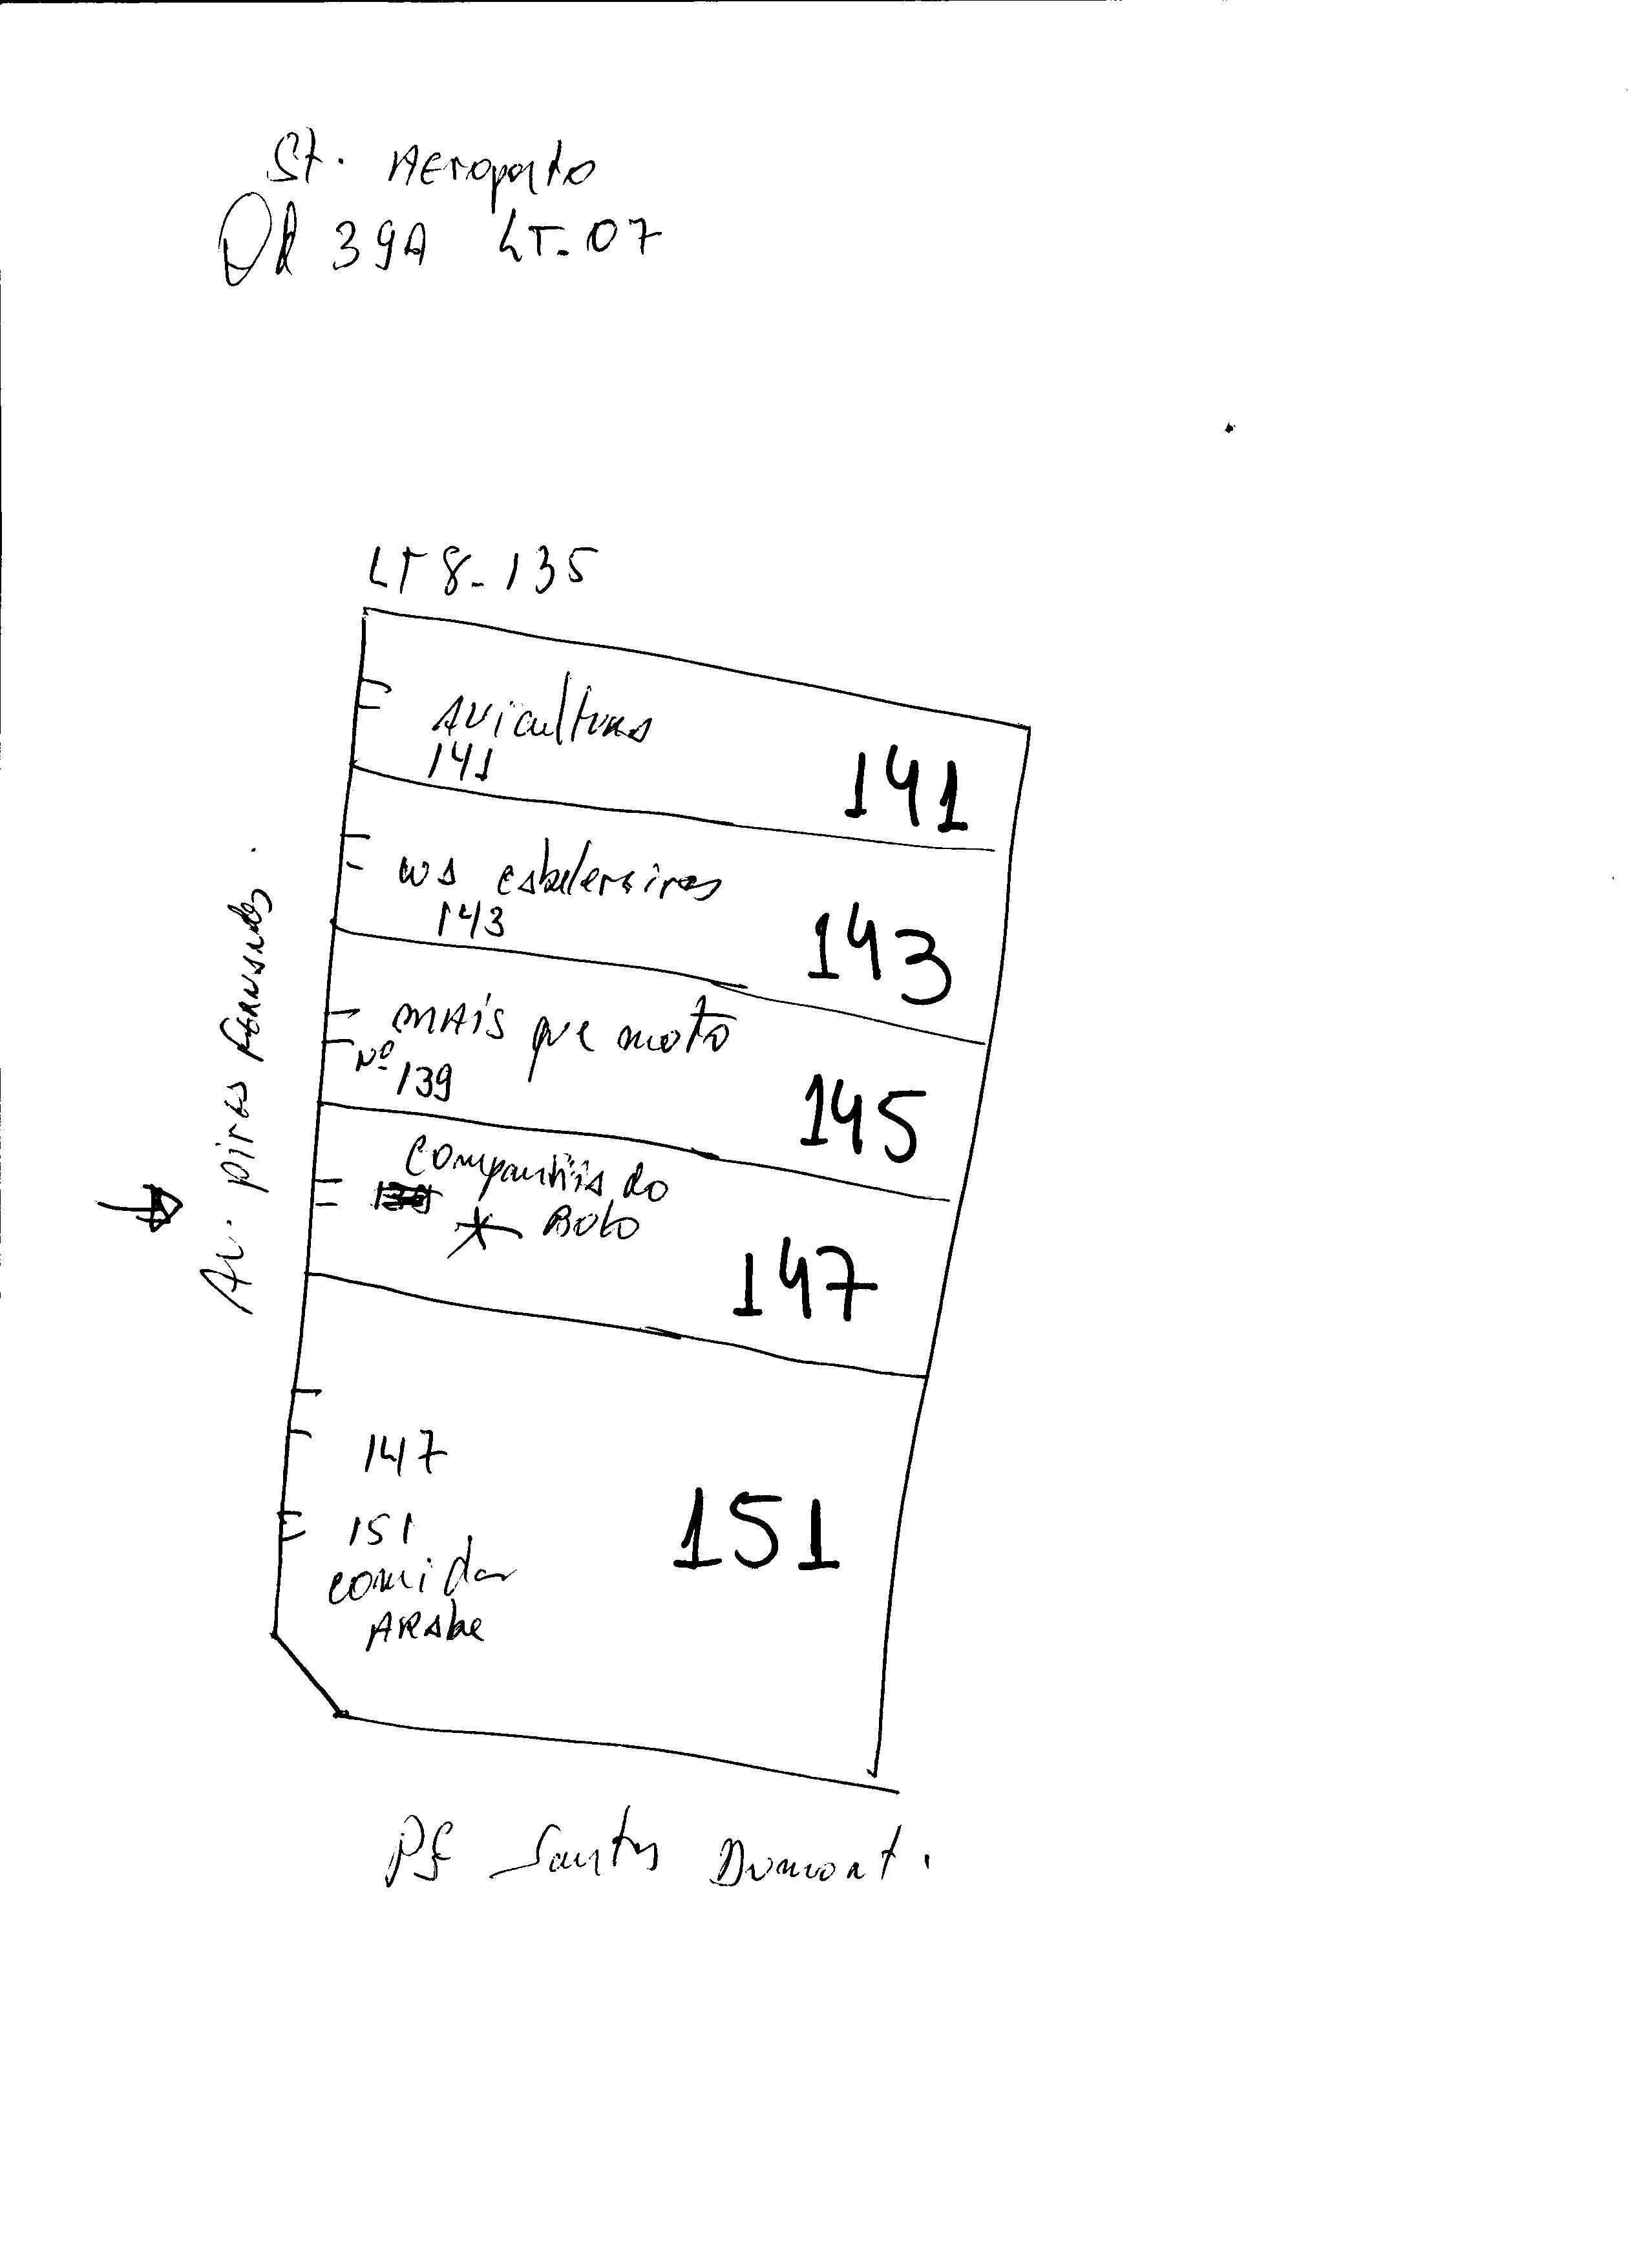 St. Aeroporto
Qd 39A LT-07
LT 8-135
Avicultura
141
141
WS cabeleireiros
143
143
Mais que moto
Nº 139
145
Companhia do
Bolo
147
147
151
151
comida
Arabe
Av. pires fernandes.
Pç Santos Dumont.